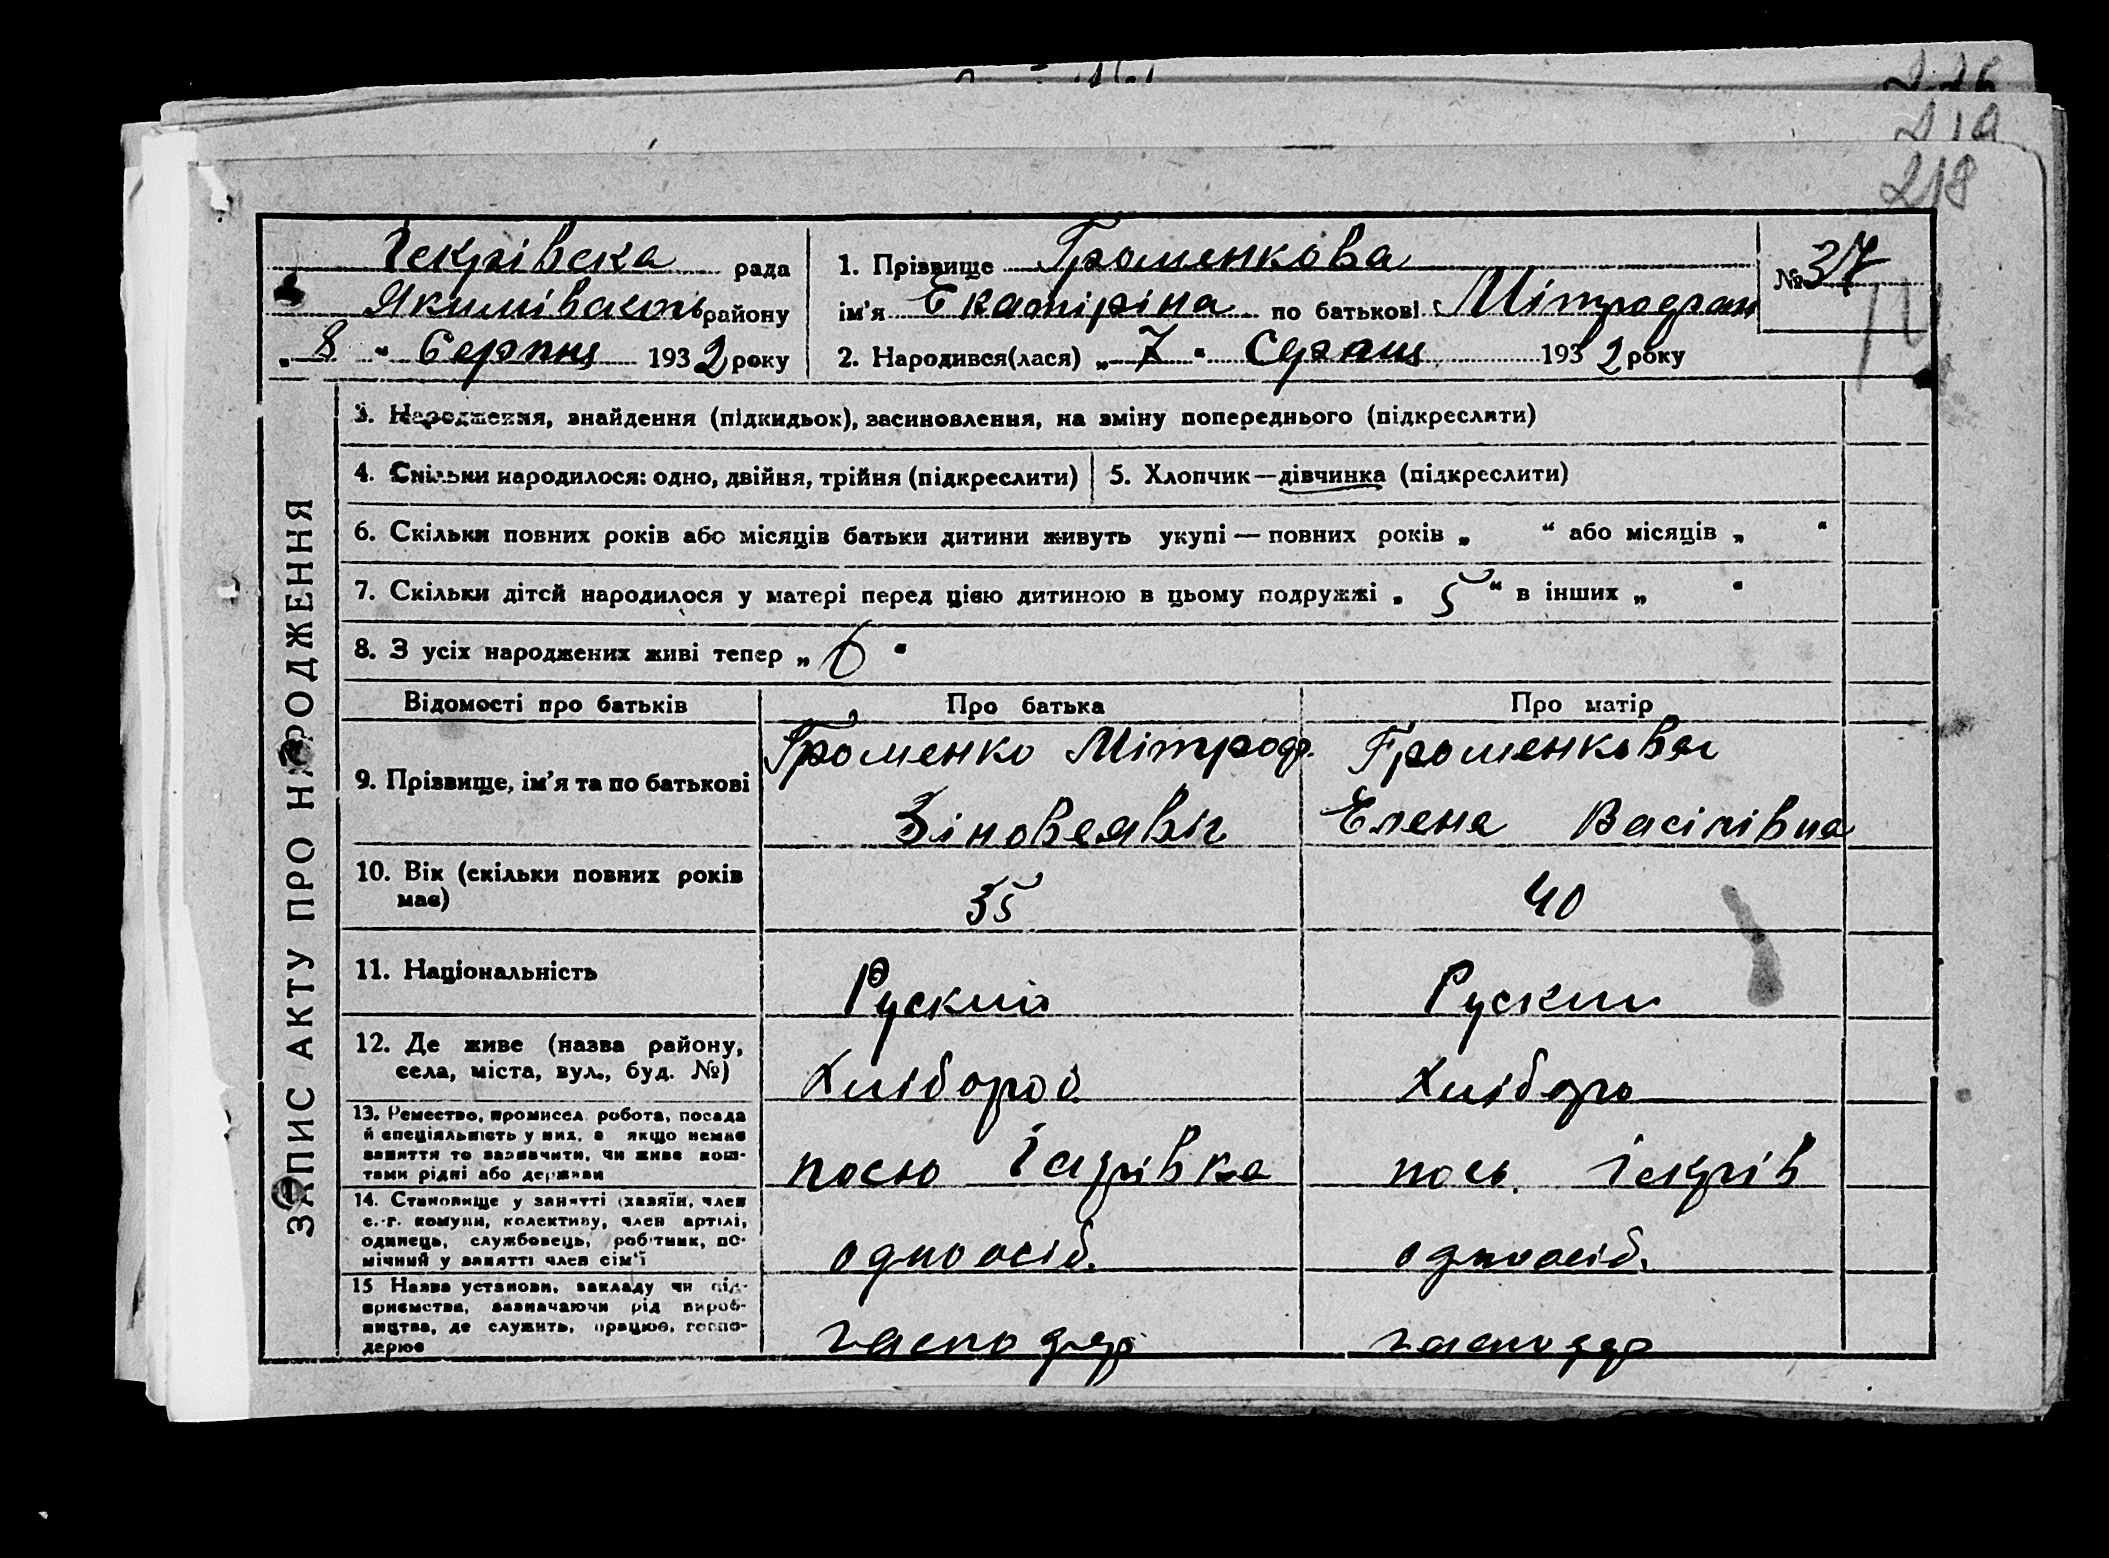 219
218
Іскрівска рада
Якимівского району
„ 8 “ Серпня 1932 року
1. Прізвище Громенкова
ім'я Екатіріна по батькові Мітрофан
2. Народився(лася) „ 7 “ Серпня 1932 року
№ 37
ЗАПИС АКТУ ПРО НАРОДЖЕННЯ
3. Народження, знайдення (підкидьок), засиновлення, на зміну попереднього (підкреслити)
4. Скільки народилося: одно, двійня, трійня (підкреслити)
5. Хлопчик—дівчинка (підкреслити)
6. Скільки повних років або місяців батьки дитини живуть укупі — повних років „ “ або місяців „ “
7. Скільки дітей народилося у матері перед цією дитиною в цьому подружжі „ 5 “ в інших „ “
8. З усіх народжених живі тепер „ 6 “
Відомості про батьків
Про батька
Про матір
9. Прізвище, ім'я та по батькові
Громенко Мітроф.
Зіновеявіч
Громенкова
Елена Васілівна
10. Вік (скільки повних років
має)
35
40
11. Національність
Руский
Руский
12. Де живе (назва району,
села, міста, вул., буд. №)
Хлібороб
Хлібор
13. Ремество, промисел, робота, посада
й спеціяльність у них, а якщо немає
заняття то зазначити, чи живе кош-
тами рідні або держави
посю Іскрівка
пось. Іскрів
14. Становище у занятті (хазяїн, член
с.-г. комуни, колективу, член артілі,
одинець, службовець, робітник, по-
мічний у занятті член сім'ї
одноосіб.
одноосіб.
15 Назва установи, закладу чи під-
приємства, зазначаючи рід вироб-
ництва, де служить, працює, госпо-
дарює
господар
господар